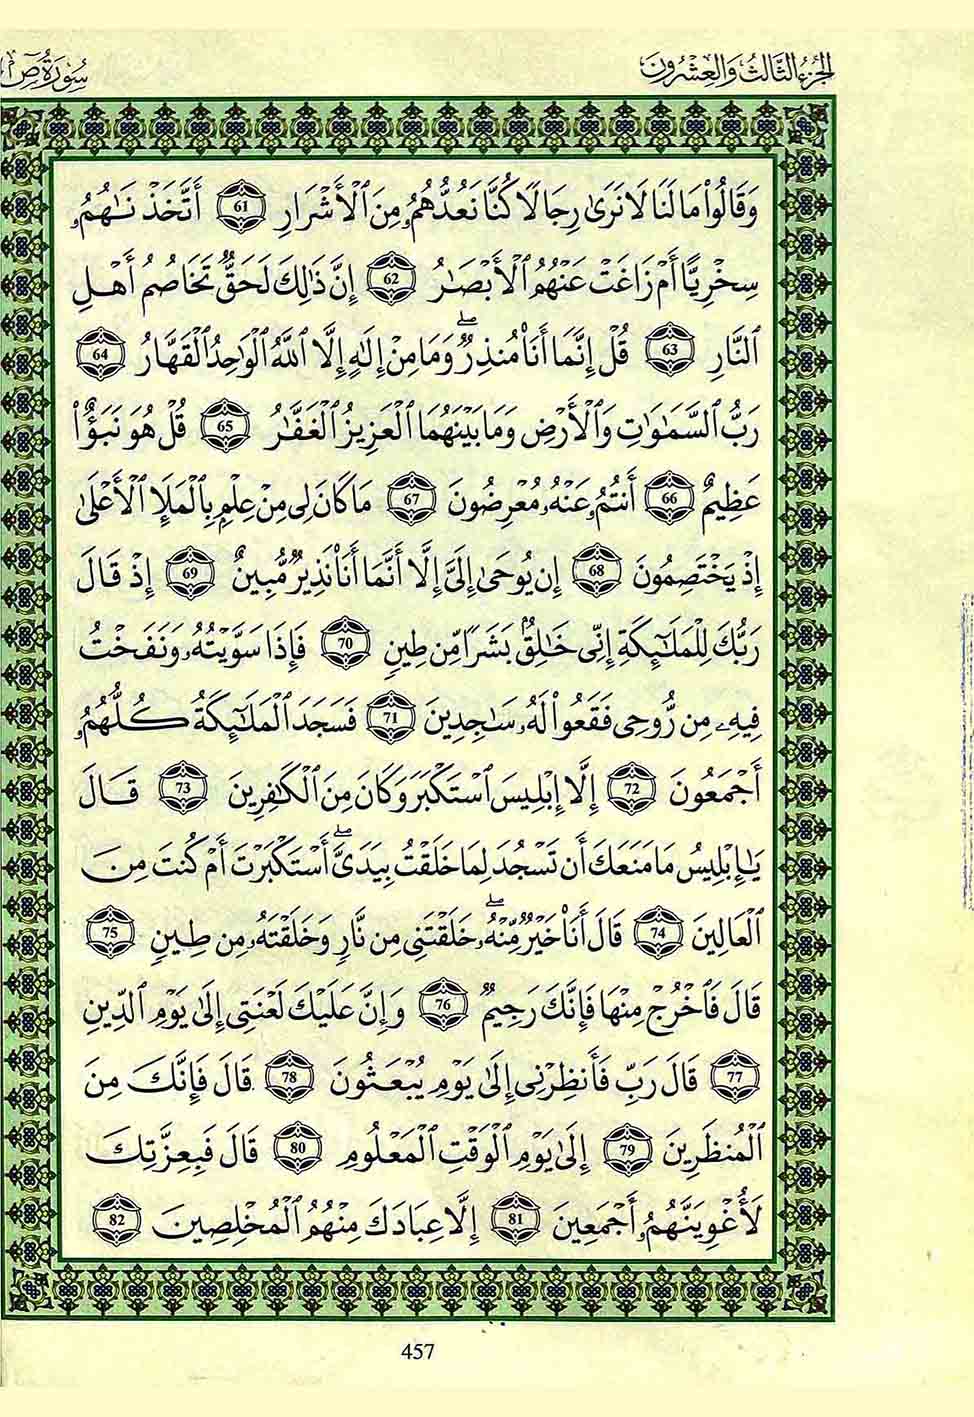 الجزء الثالث والعشرون
سورة ص
وَقَالُوا۟ مَا لَنَا لَا نَرَىٰ رِجَالًا كُنَّا نَعُدُّهُمُۥ مِنَ ٱلْأَشْرَارِ 61 أَتَّخَذْنَـٰهُمُۥ
سِخْرِيًّا أَمْ زَاغَتْ عَنْهُمُ ٱلْأَبْصَـٰرُ 62 إِنَّ ذَٰلِكَ لَحَقٌّ تَخَاصُمُ أَهْلِ
ٱلنَّارِ 63 قُلْ إِنَّمَا أَنَا۠ مُنذِرٌ ۖ وَمَا مِنْ إِلَـٰهٍ إِلَّا ٱللَّهُ ٱلْوَاحِدُ ٱلْقَهَّارُ 64
رَبُّ ٱلسَّمَـٰوَٰتِ وَٱلْأَرْضِ وَمَا بَيْنَهُمَا ٱلْعَزِيزُ ٱلْغَفَّـٰرُ 65 قُلْ هُوَ نَبَؤٌا۟
عَظِيمٌ 66 أَنتُمُۥ عَنْهُۥ مُعْرِضُونَ 67 مَا كَانَ لِى مِنْ عِلْمٍۭ بِٱلْمَلَإِ ٱلْأَعْلَىٰ
إِذْ يَخْتَصِمُونَ 68 إِن يُوحَىٰ إِلَىَّ إِلَّا أَنَّمَا أَنَا۠ نَذِيرٌ مُّبِينٌ 69 إِذْ قَالَ
رَبُّكَ لِلْمَلَـٰٓئِكَةِ إِنِّى خَـٰلِقٌۢ بَشَرًا مِّن طِينٍ 70 فَإِذَا سَوَّيْتُهُۥ وَنَفَخْتُ
فِيهِۦ مِن رُّوحِى فَقَعُوا۟ لَهُۥ سَـٰجِدِينَ 71 فَسَجَدَ ٱلْمَلَـٰٓئِكَةُ كُلُّهُمُۥ
أَجْمَعُونَ 72 إِلَّا إِبْلِيسَ ٱسْتَكْبَرَ وَكَانَ مِنَ ٱلْكَـٰفِرِينَ 73 قَالَ
يَـٰإِبْلِيسُ مَا مَنَعَكَ أَن تَسْجُدَ لِمَا خَلَقْتُ بِيَدَىَّ ۖ أَسْتَكْبَرْتَ أَمْ كُنتَ مِنَ
ٱلْعَالِينَ 74 قَالَ أَنَا۠ خَيْرٌ مِّنْهُۥ ۖ خَلَقْتَنِى مِن نَّارٍ وَخَلَقْتَهُۥ مِن طِينٍ 75
قَالَ فَٱخْرُجْ مِنْهَا فَإِنَّكَ رَجِيمٌ 76 وَإِنَّ عَلَيْكَ لَعْنَتِى إِلَىٰ يَوْمِ ٱلدِّينِ
77 قَالَ رَبِّ فَأَنظِرْنِى إِلَىٰ يَوْمِ يُبْعَثُونَ 78 قَالَ فَإِنَّكَ مِنَ
ٱلْمُنظَرِينَ 79 إِلَىٰ يَوْمِ ٱلْوَقْتِ ٱلْمَعْلُومِ 80 قَالَ فَبِعِزَّتِكَ
لَأُغْوِيَنَّهُمُۥ أَجْمَعِينَ 81 إِلَّا عِبَادَكَ مِنْهُمُ ٱلْمُخْلِصِينَ 82
457